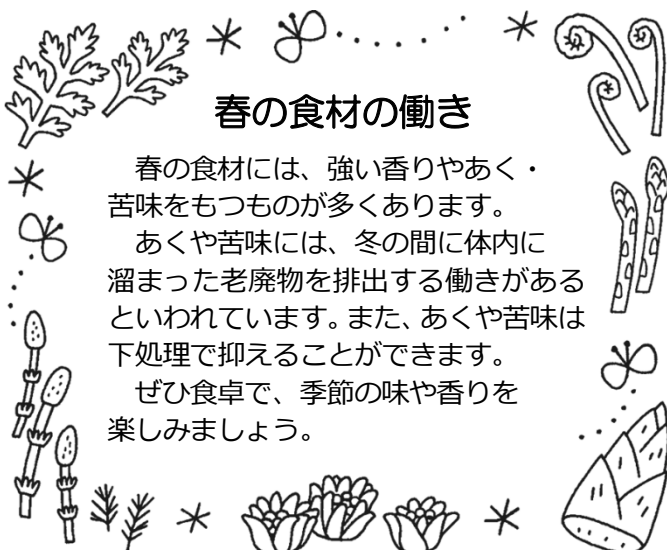 春の食材の働き
　春の食材には、強い香りやあく・
苦味をもつものが多くあります。
　あくや苦味には、冬の間に体内に
溜まった老廃物を排出する働きがある
といわれています。また、あくや苦味は
下処理で抑えることができます。
　ぜひ食卓で、季節の味や香りを
楽しみましょう。